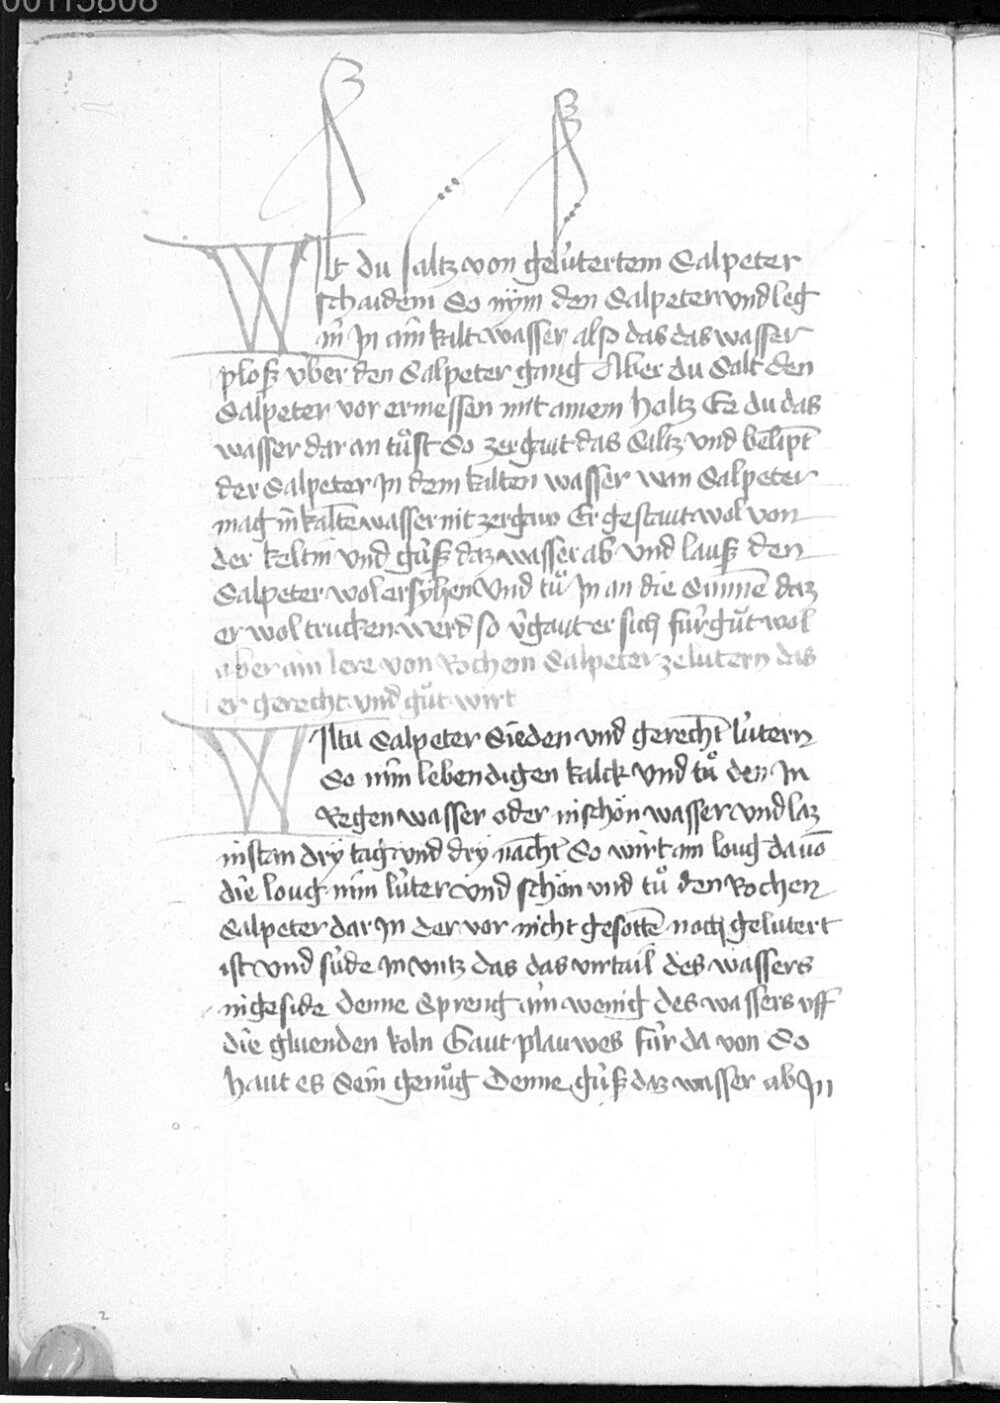 00115808
Wilt du saltz von gelu̍tertem Salpeter
schaiden So nym den Salpeter vnd leg
in In ain kalt wasser also das das wasser
plosz vber den Salpeter gang Aber du Salt den
Salpeter vor ermessen mit ainem holtz Ee du das
wasser dar an tuͦst So zergaut das Saltz vnd belipt
der Salpeter In dem kalten wasser wan Salpeter
mag in kaltē wasser nit zergan Er gestaut wol von
der keltin vnd gu̍sz daz wasser ab vnd lausz den
Salpeter wol ersyhen Vnd tuͦ In an die Sunnē daz
er wol trucken werd so v̍gaut er sich fu̍r guͦt wol
aber ain lere von Rochem Salpeter ze lutern das
er gerecht vnd guͦt wirt
Wiltu Salpeter Sieden vnd gerecht lu̍tern
So nim lebendigen kalck vnd tuͦ den In
Regen wasser oder in schön wasser vnd laz
in stan dry tag vnd dry nacht So wirt ain loug dauō
die loug nim lu̍ter vnd schön vnd tuͦ den Rochen
Salpeter dar In der vor nicht gesottē noch gelutert
ist vnd su̍de In vntz das das virtail des wassers
in geside Denne Spreng ain wenig des wassers vff
die gluenden koln Gaut plauwes fu̍r da von So
haut es Sein genuͦg Denne gu̍sz daz wasser ab In
2